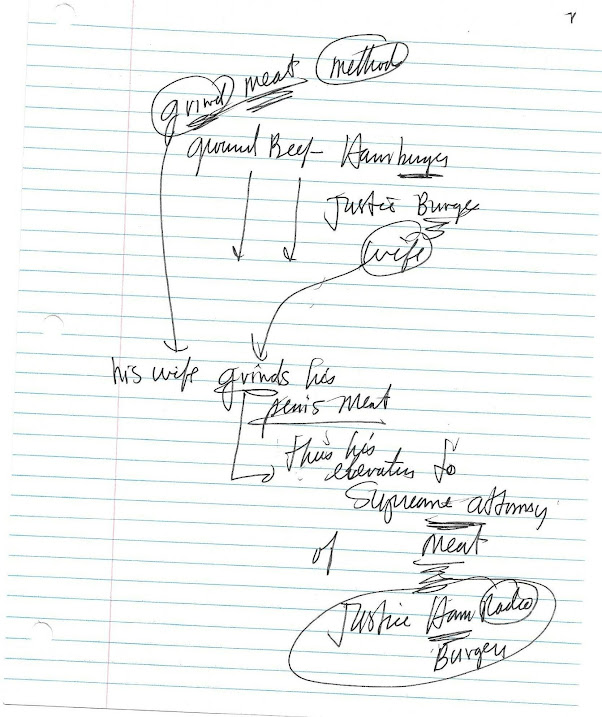 grind meat method
ground Beef Hamburger
Justice Burger
wife
his wife grinds his
penis meat
thus his
elevation to
Supreme attorney
of meat
Justice Ham Radio
Burger